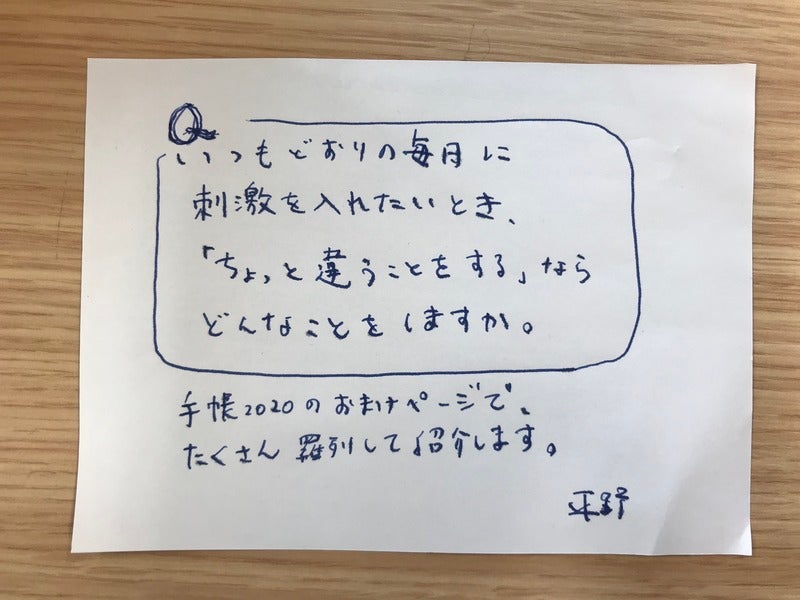 Q
いつもどおりの毎日に
刺激を入れたいとき、
「ちょっと違うことをする」なら
どんなことをしますか。
手帳2020のおまけページで、
たくさん羅列して紹介します。
平野